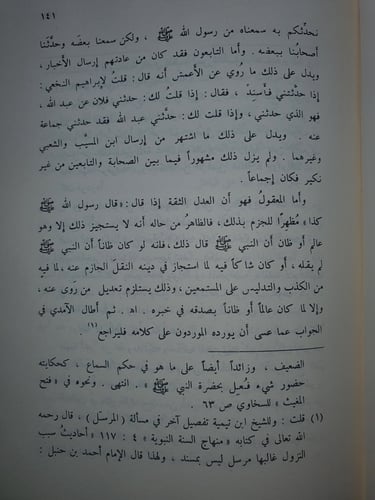 ١٤١
نحدِّثكم به سمعناه من رسول الله ﷺ ، ولكن سمعنا بعضَه وحدَّثَنا
أصحابُنا ببعضِه . وأما التابعون فقد كان من عادتهم إرسال الأخبار ،
ويدل على ذلك ما رُوي عن الأعمش أنه قال : قلتُ لإبراهيم النخعي :
إذا حدَّثتني فأسنِدْ ، فقال : إذا قلتُ لك : حدثني فلان عن عبد الله ،
فهو الذي حدثني ، وإذا قلت لك : حدَّثني عبد الله فقد حدثني جماعة
عنه . ويدل على ذلك ما اشتهر من إرسال ابن المسيَّب والشعبي
وغيرهما . ولم يزل ذلك مشهوراً فيما بين الصحابة والتابعين من غير
نكير فكان إجماعاً .
وأما المعقولُ فهو أن العدل الثقة إذا قال : «قال رسول الله ﷺ
كذا» مُظهِراً للجزم بذلك ، فالظاهرُ من حاله أنه لا يستجيز ذلك إلا وهو
عالم أو ظان أن النبي ﷺ قال ذلك ، فانه لو كان ظاناً أن النبي ﷺ
لم يقله ، أو كان شاكاً فيه لما استجاز في دينه النقلَ الجازم عنه ، لما فيه
من الكذب والتدليس على المستمعين ، وذلك يستلزم تعديل من روى عنه ،
وإلا لما كان عالماً أو ظاناً بصدقه في خبره . اه . ثم أطال الآمدي في
الجواب عما عسى أن يورده الموردون على كلامه فليراجع(١) .
الضعيف ، وزائداً أيضاً على ما هو في حكم السماع ، كحكايته
حضور شيء فُعيل بحضرة النبي ﷺ » . انتهى . ونحوه في « فتح
المغيث » للسخاوي ص ٦٣ .
(١) قلت : وللشيخ ابن تيمية تفصيل آخر في مسألة ( المرسَل ) ، قال رحمه
الله تعالى في كتابه « منهاج السنة النبوية » ٤ : ١١٧ « أحاديثُ سبب
النزول غالبها مرسل ليس بمسند ، ولهذا قال الإمام أحمد بن حنبل :